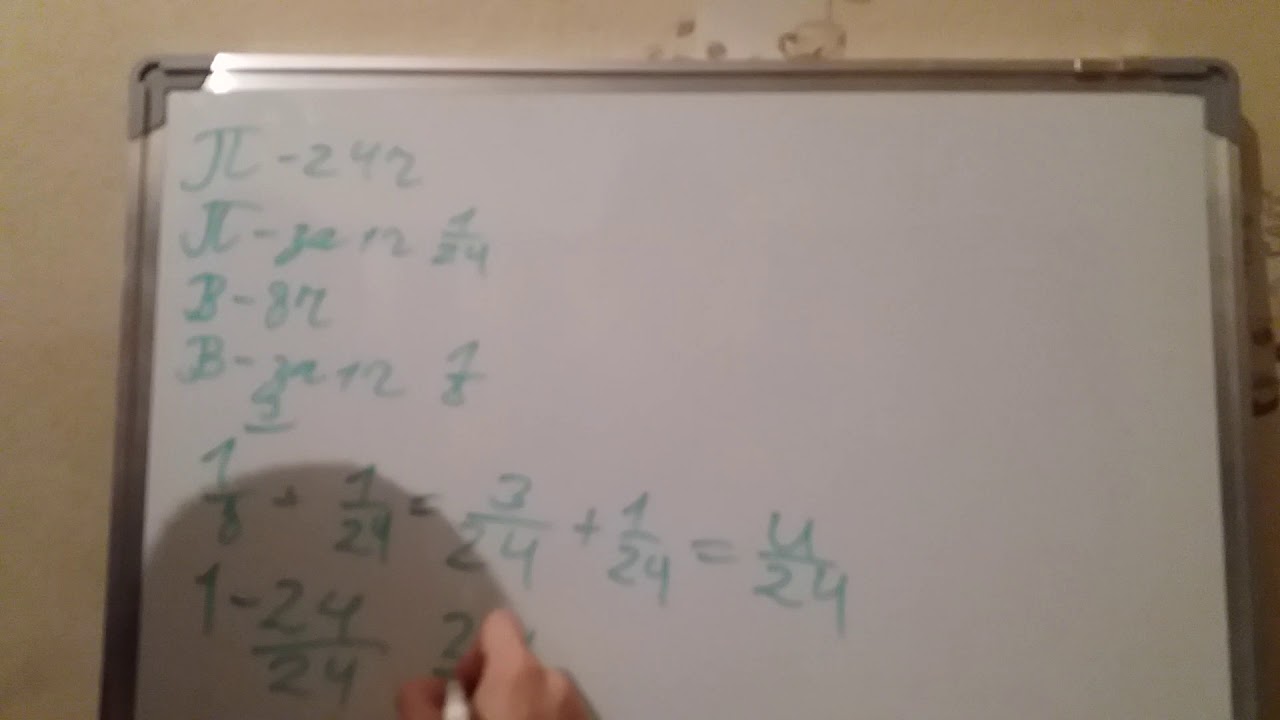 П - 24 ч
П - за 1 ч 1/24
В - 8 ч
В - за 1 ч 1/8
3
1/8 + 1/24 = 3/24 + 1/24 = 4/24
1 - 24/24